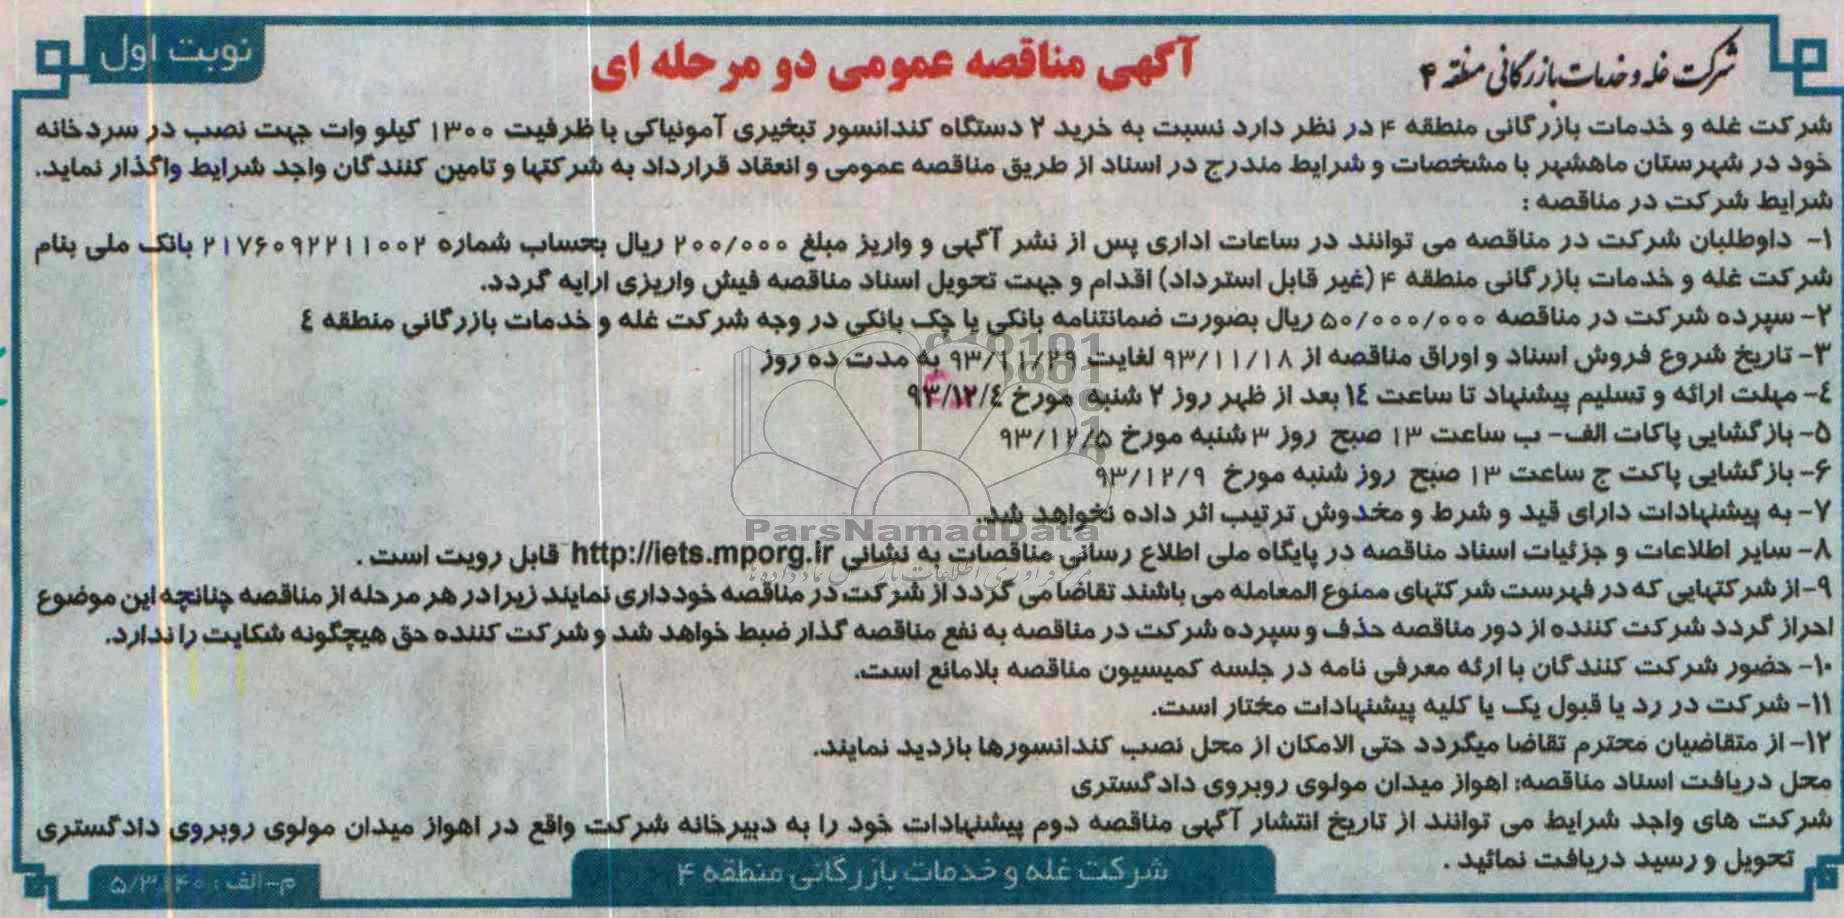 نوبت اول
آگهی مناقصه عمومی دو مرحله ای
شرکت غله و خدمات بازرگانی منطقه ۴
شرکت غله و خدمات بازرگانی منطقه ۴ در نظر دارد نسبت به خرید ۲ دستگاه کندانسور تبخیری آمونیاکی با ظرفیت ۱۳۰۰ کیلو وات جهت نصب در سردخانه
خود در شهرستان ماهشهر با مشخصات و شرایط مندرج در اسناد از طریق مناقصه عمومی و انعقاد قرارداد به شرکتها و تامین کنندگان واجد شرایط واگذار نماید.
شرایط شرکت در مناقصه :
۱- داوطلبان شرکت در مناقصه می توانند در ساعات اداری پس از نشر آگهی و واریز مبلغ ۲۰۰/۰۰۰ ریال بحساب شماره ۲۱۷۶۰۹۲۲۱۱۰۰۲ بانک ملی بنام
شرکت غله و خدمات بازرگانی منطقه ۴ (غیر قابل استرداد) اقدام و جهت تحویل اسناد مناقصه فیش واریزی ارایه گردد.
۲- سپرده شرکت در مناقصه ۵۰/۰۰۰/۰۰۰ ریال بصورت ضمانتنامه بانکی یا چک بانکی در وجه شرکت غله و خدمات بازرگانی منطقه ٤
۳- تاریخ شروع فروش اسناد و اوراق مناقصه از ۹۳/۱۱/۱۸ لغایت ۹۳/۱۱/۲۹ به مدت ده روز
٤- مهلت ارائه و تسلیم پیشنهاد تا ساعت ١٤ بعد از ظهر روز ۲ شنبه مورخ ۹۳/۱۲/٤
۵- بازگشایی پاکات الف- ب ساعت ۱۳ صبح روز ۳ شنبه مورخ ۹۳/۱۲/۵
۶- بازگشایی پاکت ج ساعت ۱۳ صبح روز شنبه مورخ ۹۳/۱۲/۹
۷- به پیشنهادات دارای قید و شرط و مخدوش ترتیب اثر داده نخواهد شد.
۸- سایر اطلاعات و جزئیات اسناد مناقصه در پایگاه ملی اطلاع رسانی مناقصات به نشانی http://iets.mporg.ir قابل رویت است .
۹-از شرکتهایی که در فهرست شرکتهای ممنوع المعامله می باشند تقاضا می گردد از شرکت در مناقصه خودداری نمایند زیرا در هر مرحله از مناقصه چنانچه این موضوع
احراز گردد شرکت کننده از دور مناقصه حذف و سپرده شرکت در مناقصه به نفع مناقصه گذار ضبط خواهد شد و شرکت کننده حق هیچگونه شکایت را ندارد.
۱۰- حضور شرکت کنندگان با ارئه معرفی نامه در جلسه کمیسیون مناقصه بلامانع است.
۱۱- شرکت در رد یا قبول یک یا کلیه پیشنهادات مختار است.
۱۲- از متقاضیان محترم تقاضا میگردد حتی الامکان از محل نصب کندانسورها بازدید نمایند.
محل دریافت اسناد مناقصه: اهواز میدان مولوی روبروی دادگستری
شرکت های واجد شرایط می توانند از تاریخ انتشار آگهی مناقصه دوم پیشنهادات خود را به دبیرخانه شرکت واقع در اهواز میدان مولوی روبروی دادگستری
تحویل و رسید دریافت نمائید .
شرکت غله و خدمات بازرگانی منطقه ۴
م-الف : ۵/۳۱۴۰
ParsNamadData